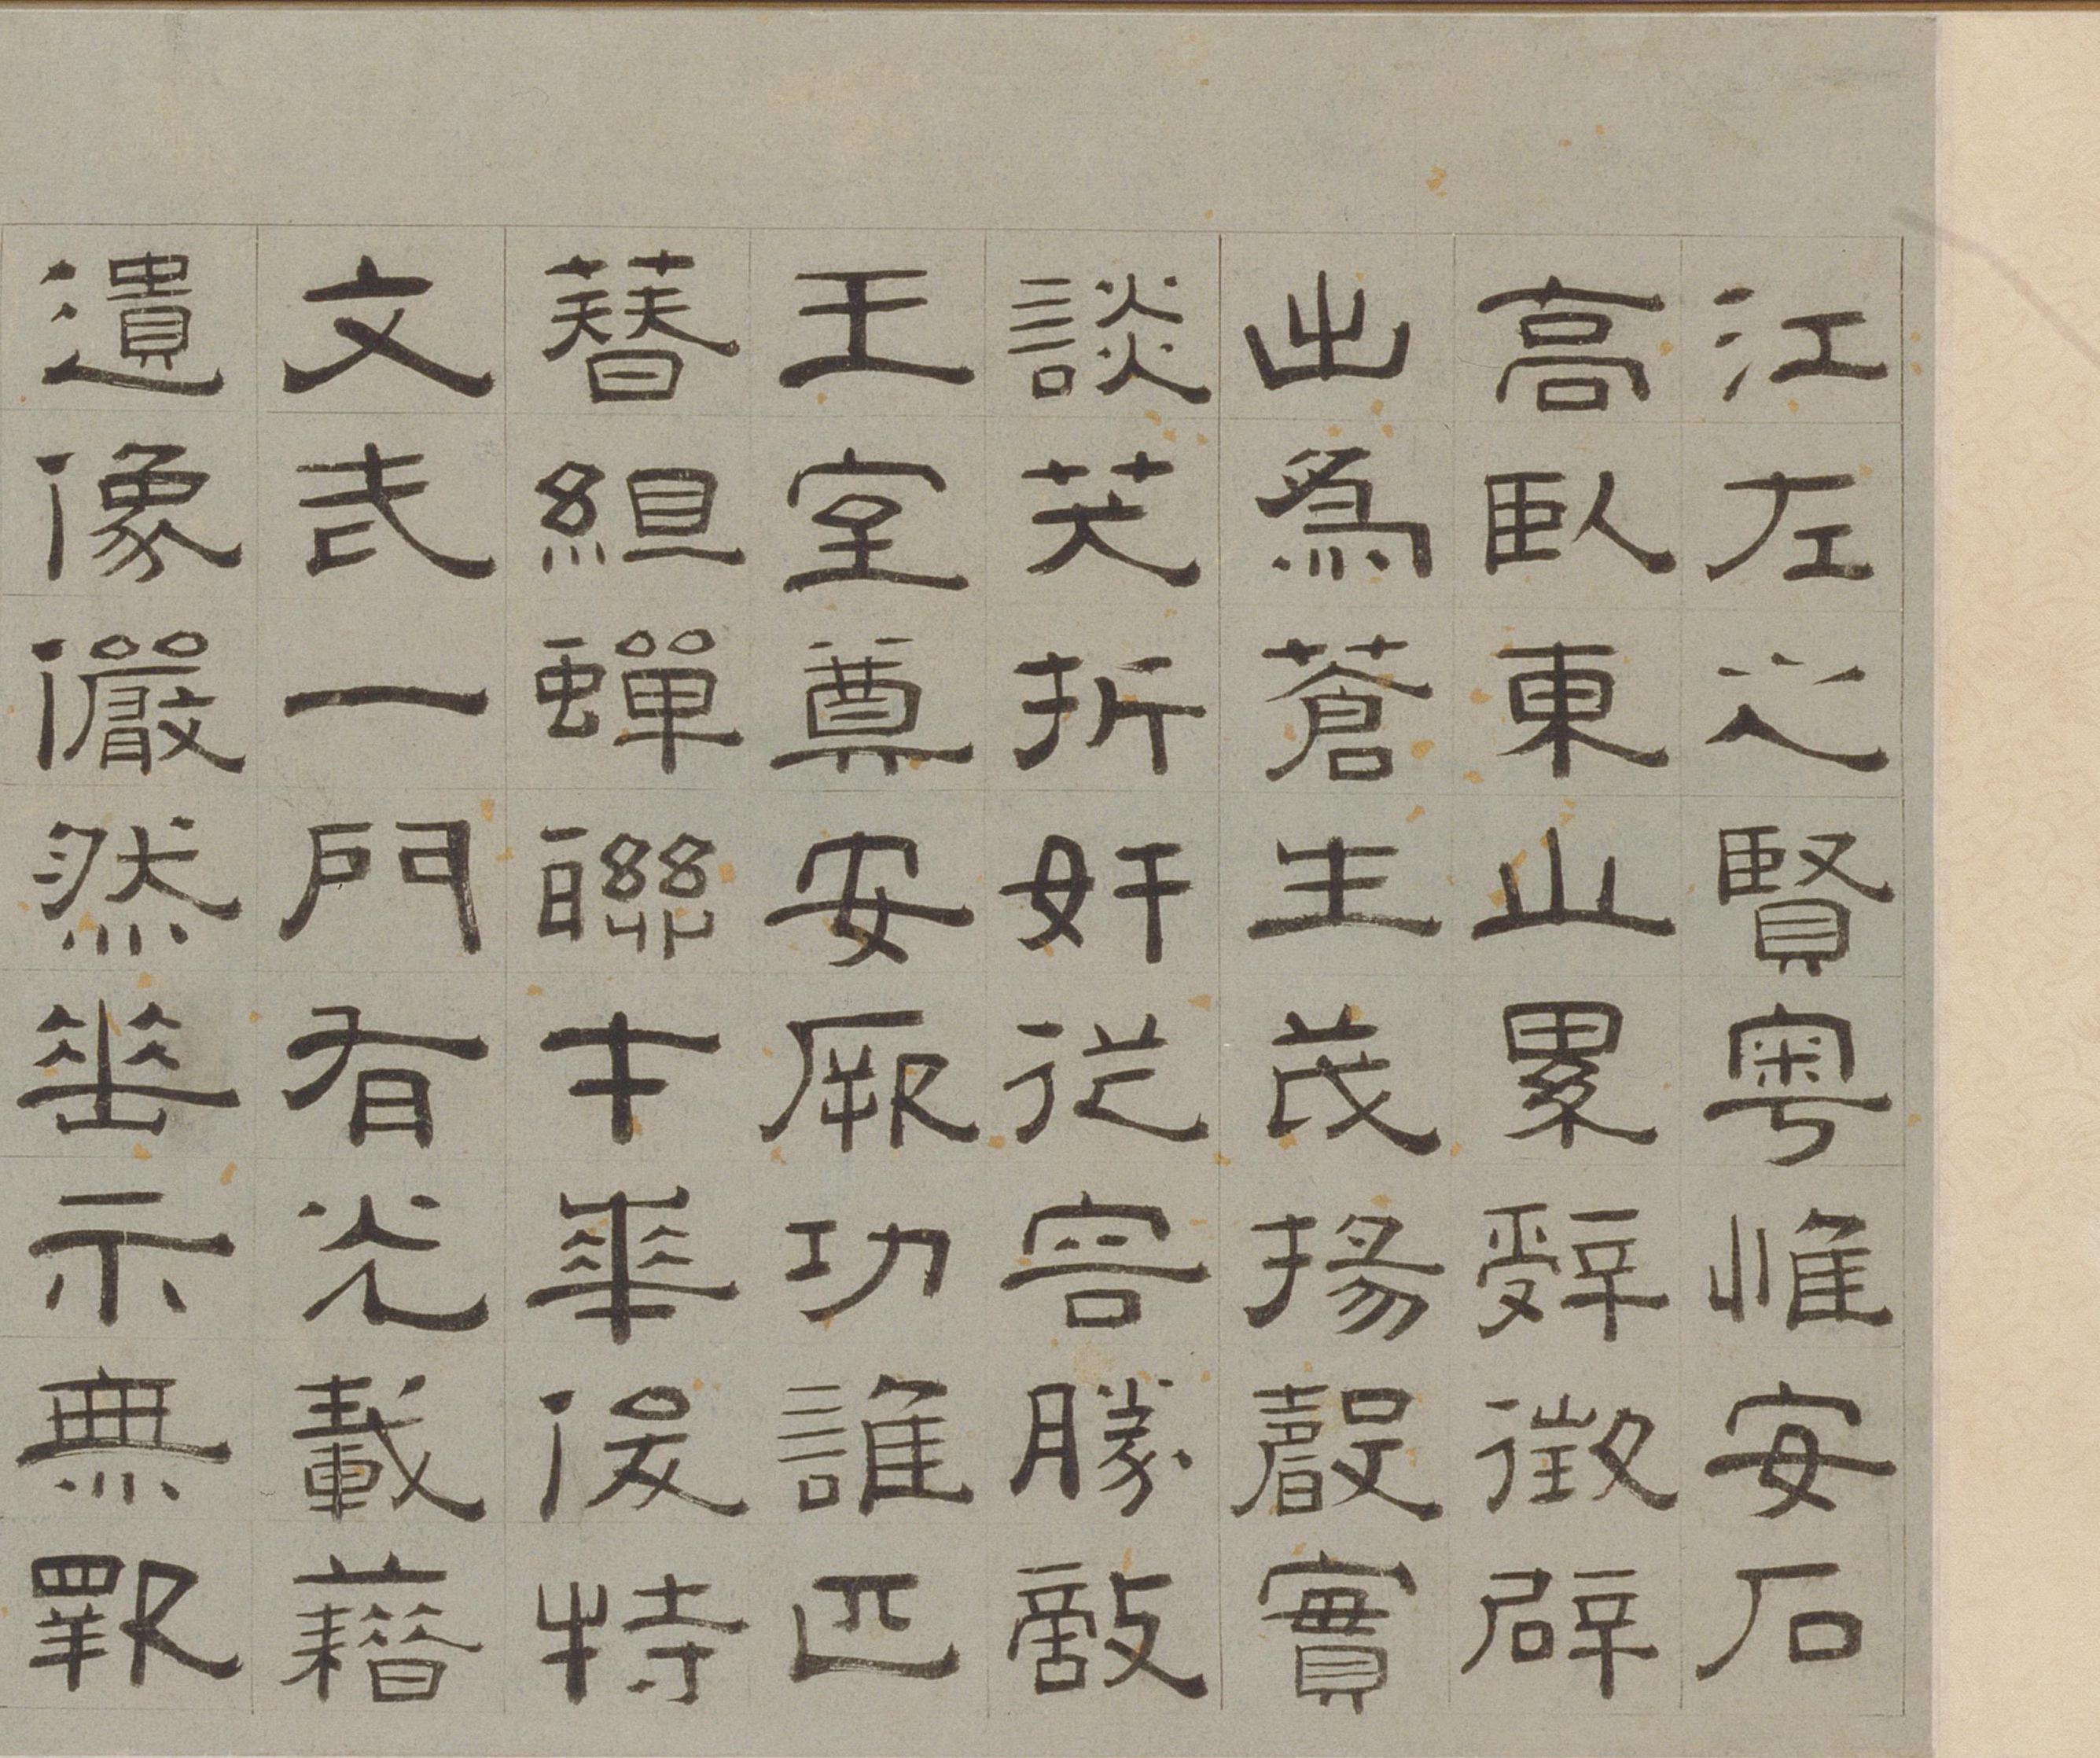 江左之賢粵惟安石
高臥東山累辭徵辟
出為蒼生茂揚聲實
談笑折奸從容勝敵
王室尊安厥功誰匹
簪組蟬聯才華俊特
文武一門有光載藉
遺像儼然垂示無斁